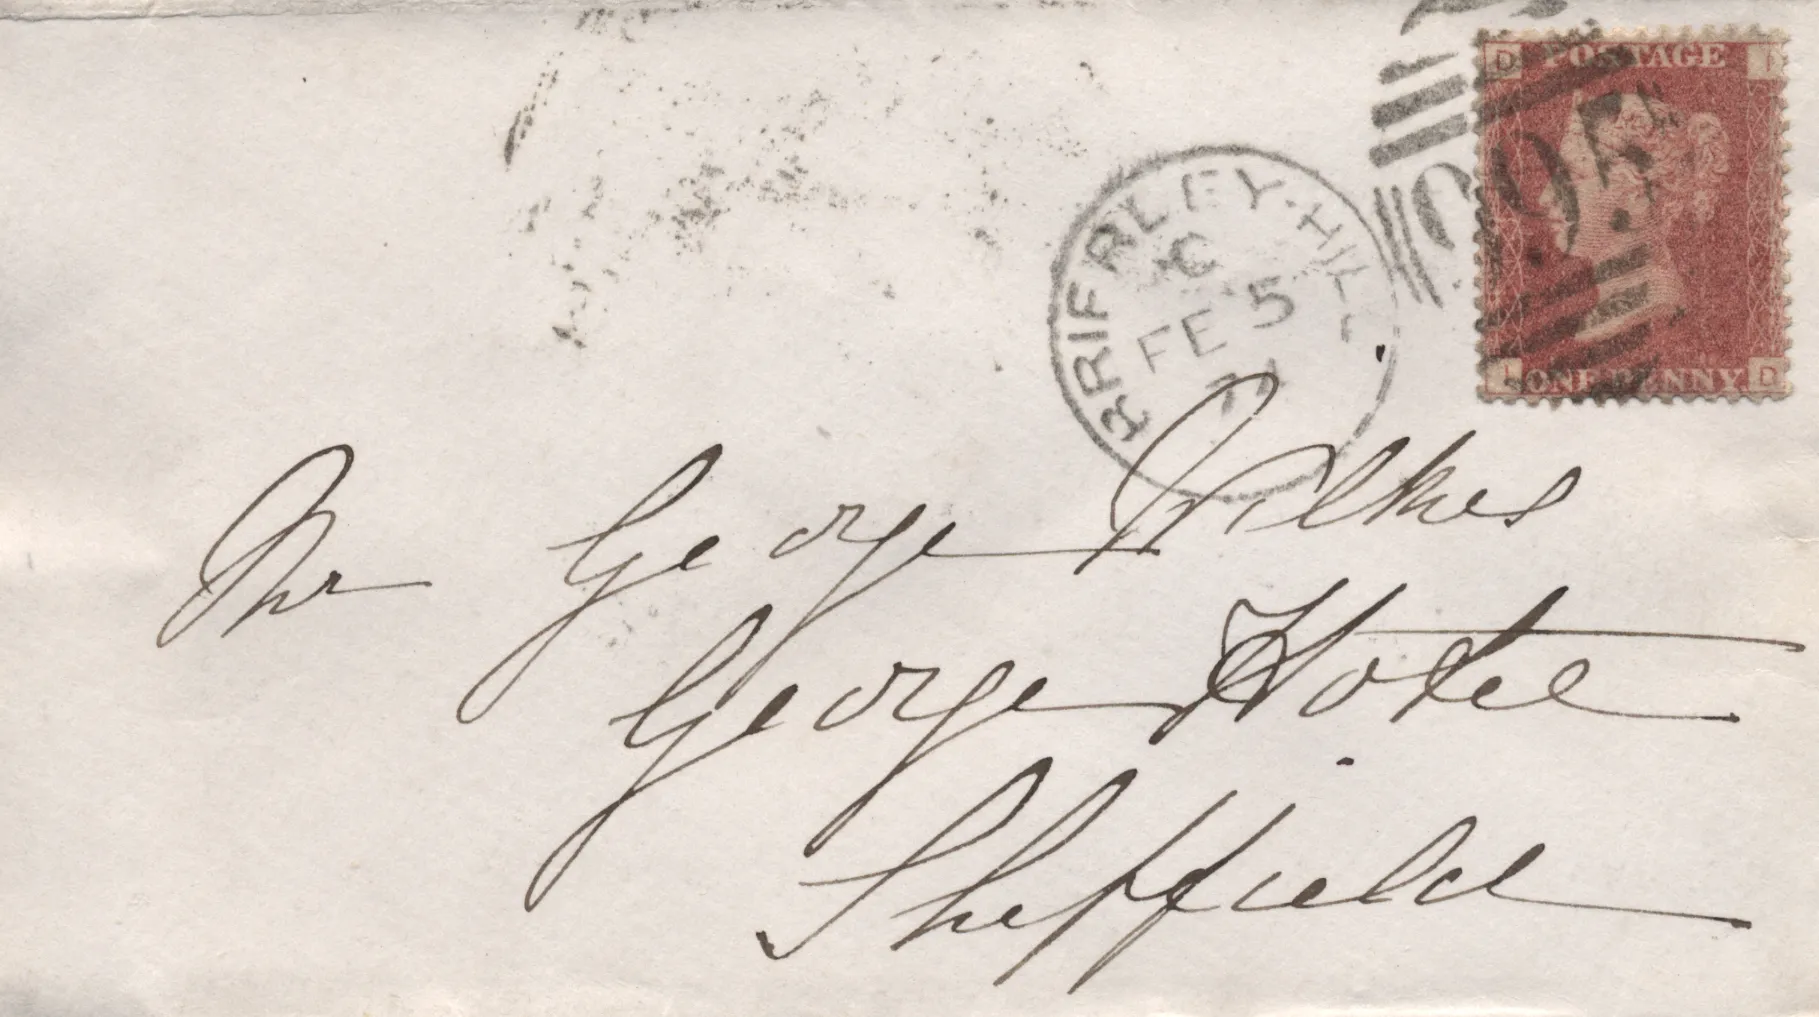 D POSTAGE I
995
BRIERLEY-HILL
C
FE 5
71
I ONE PENNY D
Mr George Wilkes
George Hotel
Sheffield